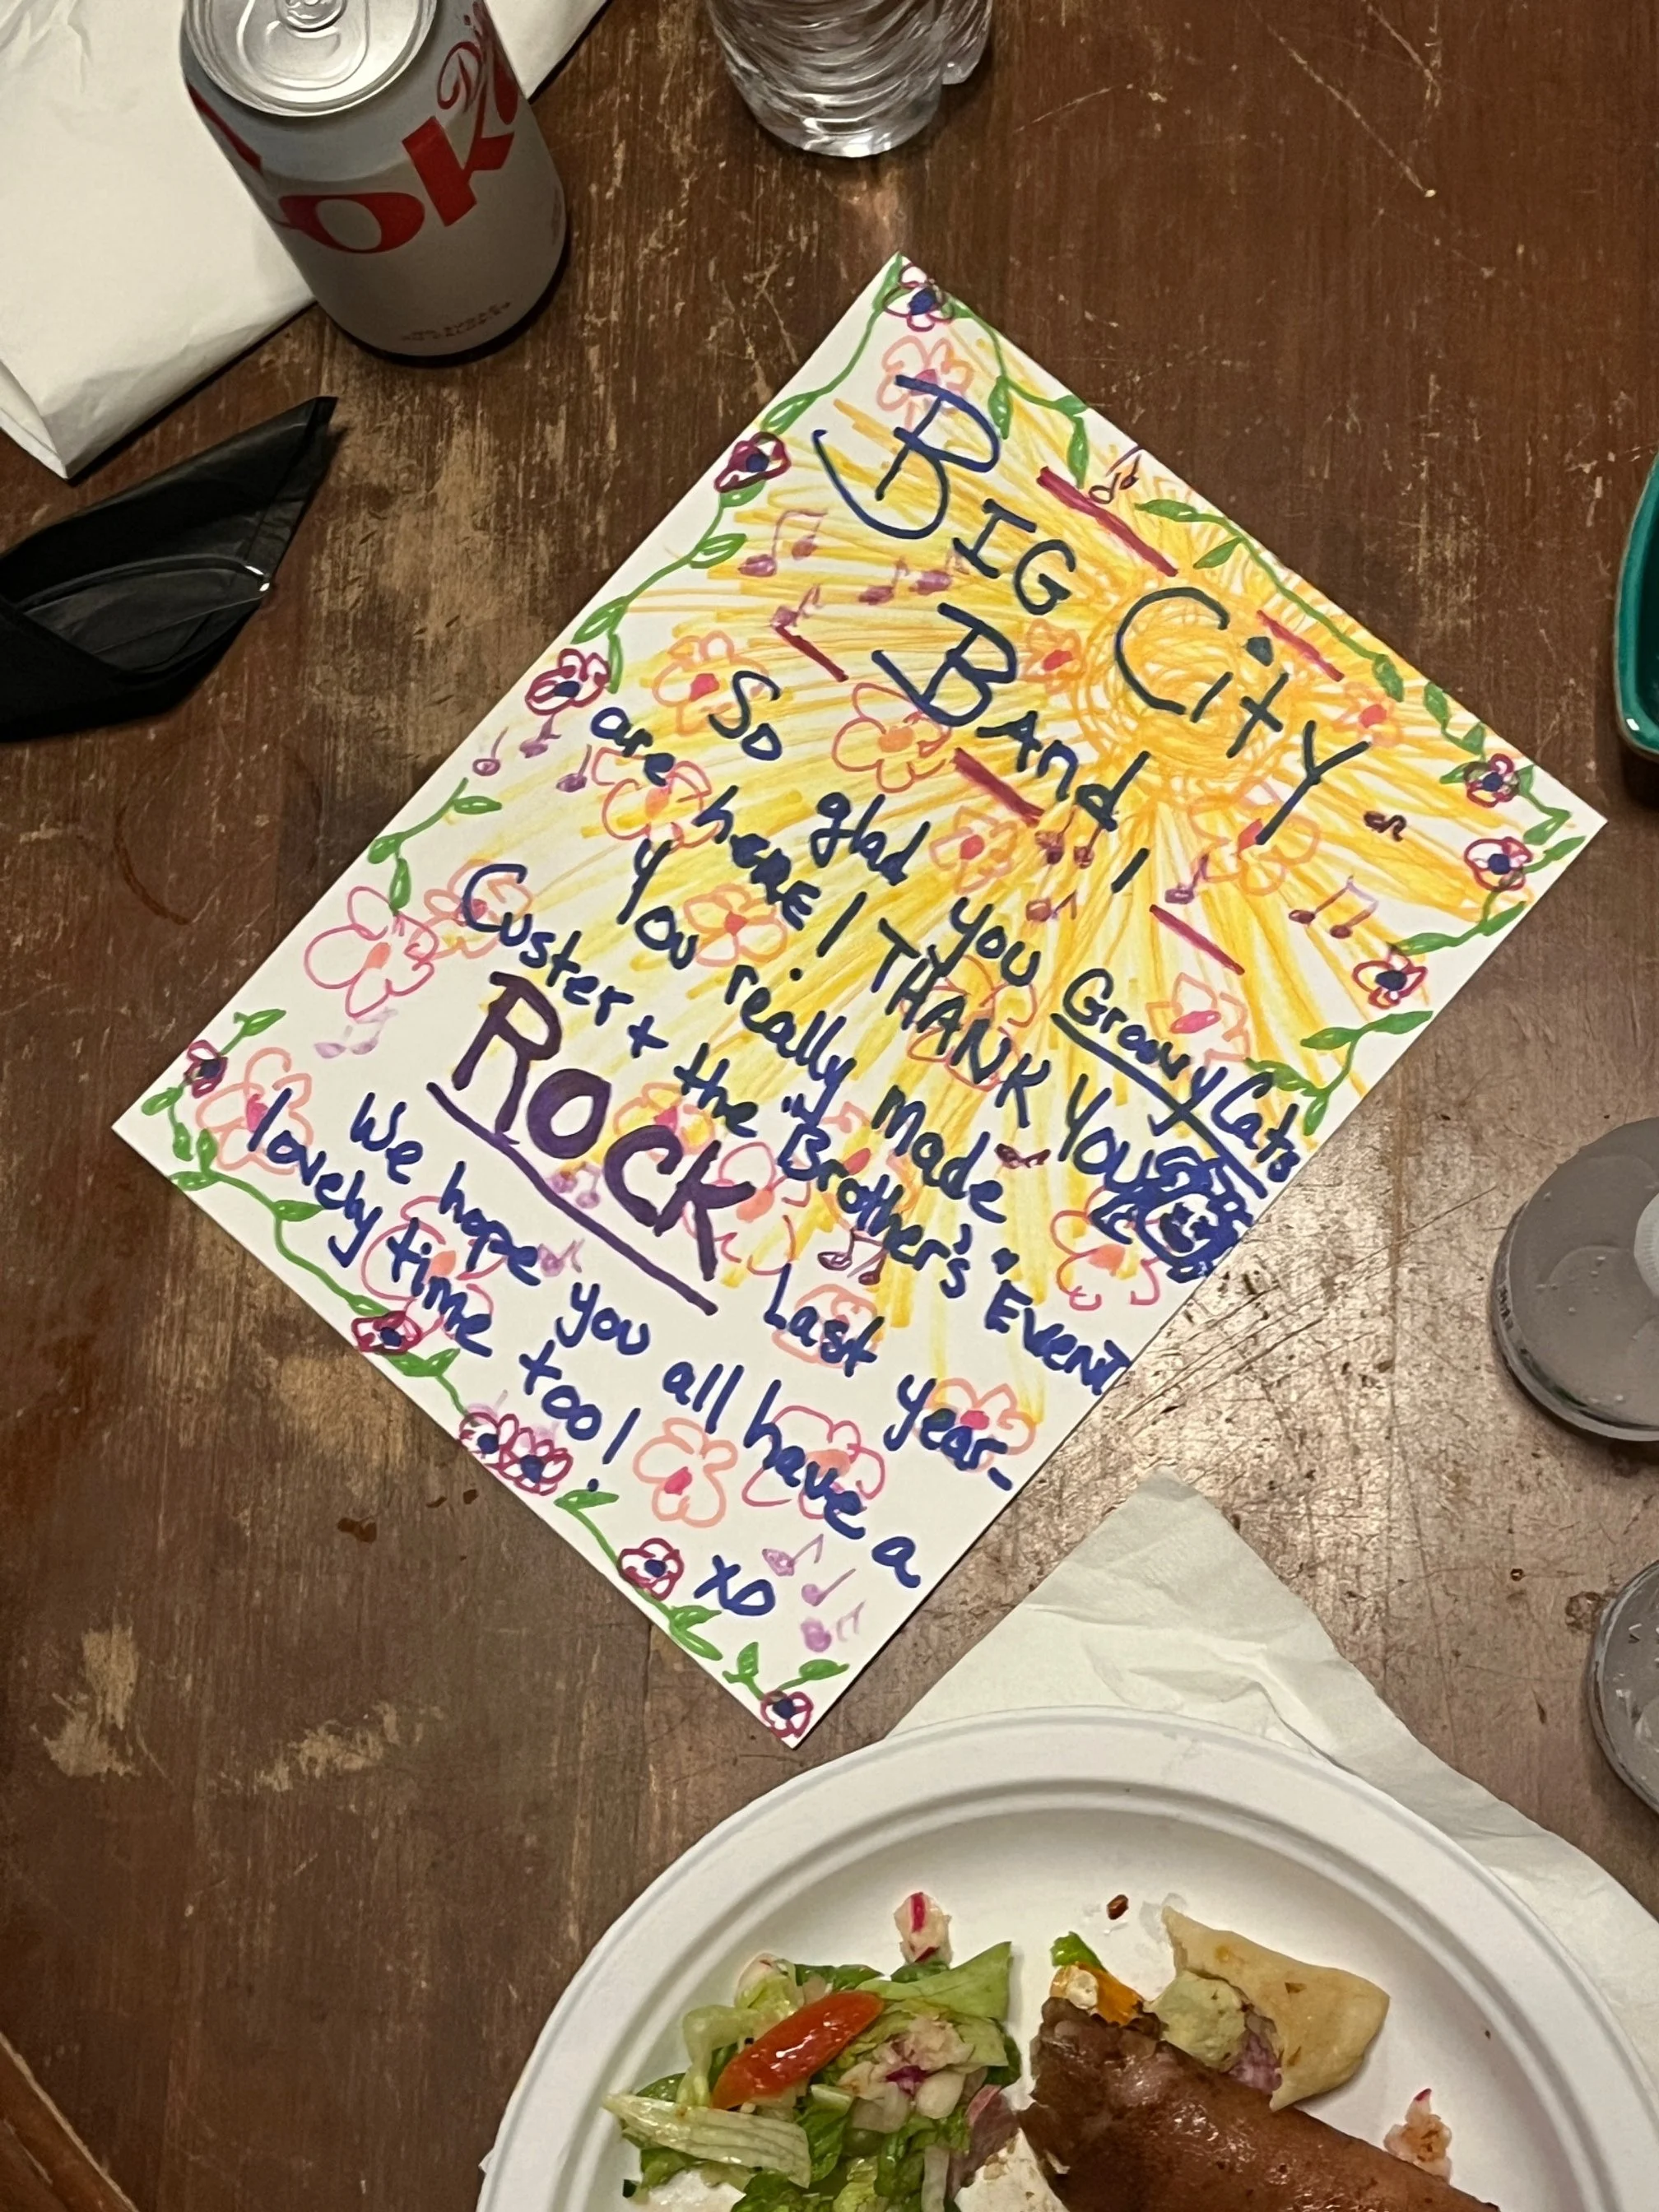 Diet
Coke
BIG City
Band!
So glad you Groovy Cats
are here! THANK YOU
you really made
Custer + the Brother's Event
ROCK Last year-
We hope you all have a
lovely time too!
xo